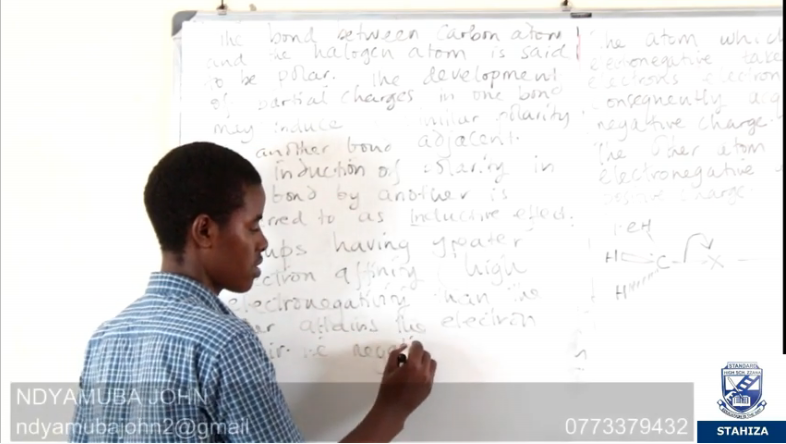 The bond between carbon atom
and the halogen atom is said
to be polar. The development
of partial charges in one bond
may induce similar polarity
another bond adjacent.
induction of polarity in
bond by another is
rred to as Inductive effect.
ups having greater
ectron affinity / high
electronegativity than the
er attains the electron
ir. i.e nega
The atom which
electronegative take
electrons electron
consequently acq
negative charge.
The other atom
electronegative
positive charge
H C X
H
NDYAMUBA JOHN
ndyamubajohn2@gmail
0773379432
STANDARD
HIGH SCH. ZZANA
STAHIZA